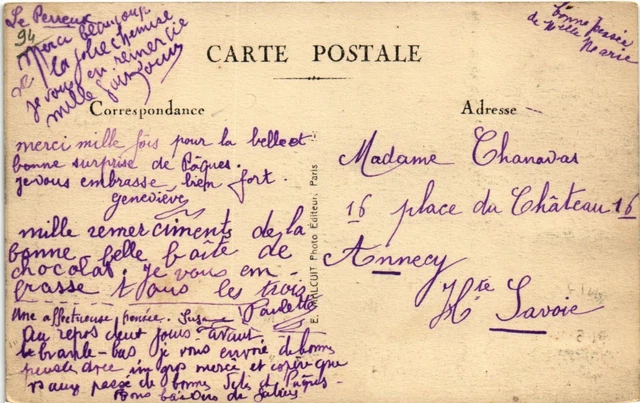 Le Perreux
94
Merci beaucoup
de la jolie chemise
je vous en remercie
mille fois
bonne pensée
de Mlle Marie
CARTE POSTALE
Correspondance
Adresse
merci mille fois pour la belle et
bonne surprise de Pâques.
je vous embrasse bien fort.
Geneviève
mille remerciments de la
bonne belle boîte de
chocolat. je vous em-
brasse tous les trois
Paulette
Une affectueuse pensée. Suzanne
Au repos deux jours avant
le branle-bas, je vous envoie de bonnes
pensées avec un gros merci et espère que
vous avez passé de bonnes fêtes de Pâques -
Bons baisers de
E. MALCUIT Photo Editeur, Paris
Madame Chanavas
16 place du Château 16
Annecy
Hte Savoie